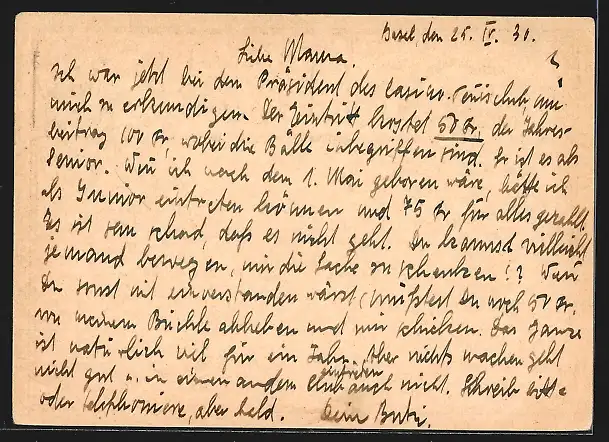 Basel, den 25. IV. 30.
Liebe Mama.
Ich war jetzt bei dem Präsident des Casino-Tennisclub, um
mich zu erkundigen. Der Eintritt kostet 50 Fr, der Jahres-
beitrag 100 Fr, wobei die Bälle inbegriffen sind. Er ist es als
Senior. Wenn ich nach dem 1. Mai geboren wäre, hätte ich
als Junior eintreten können und 75 Fr für alles gezahlt.
Es ist sehr schad, daß es nicht geht. Du kannst vielleicht
jemand bewegen, mir die Sache zu schenken!? Wenn
Du sonst nit einverstanden wärst, müßtest Du noch 50 Fr.
von meinem Büchle abheben und mir schicken. Das Ganze
ist natürlich viel für ein Jahr. Aber nichts machen geht
nicht gut u. in einen andern Club eintreten auch nicht. Schreib bitte
oder telephoniere, aber bald. Dein